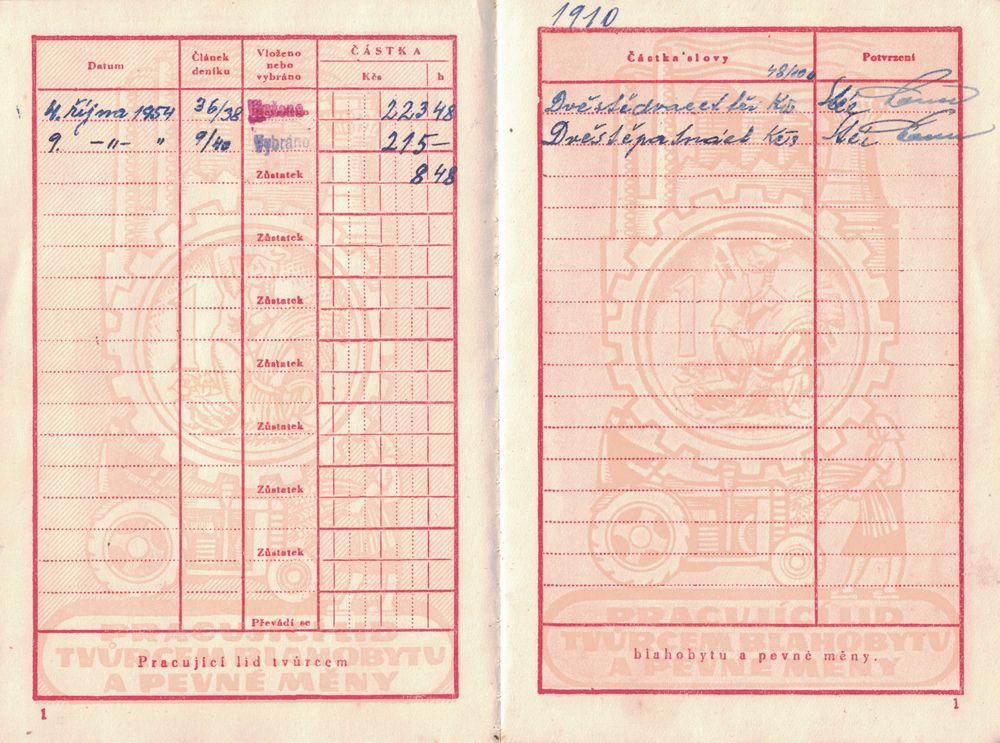 Datum
Článek deníku
Vloženo nebo vybráno
ČÁSTKA
Kčs
h
4. října 1954 36/38 Vloženo 223 48
9. –„– „ 9/40 Vybráno 215 –
Zůstatek 8 48
Zůstatek
Zůstatek
Zůstatek
Zůstatek
Zůstatek
Zůstatek
Převádí se
PRACUJÍCÍ LID
TVŮRCEM BLAHOBYTU
A PEVNÉ MĚNY
Pracující lid tvůrcem
1
1910
Částka slovy
Potvrzení
48/100
Dvěstědvacettři Kčs
Dvěstěpatnáct Kčs
PRACUJÍCÍ LID
TVŮRCEM BLAHOBYTU
A PEVNÉ MĚNY
blahobytu a pevné měny.
1